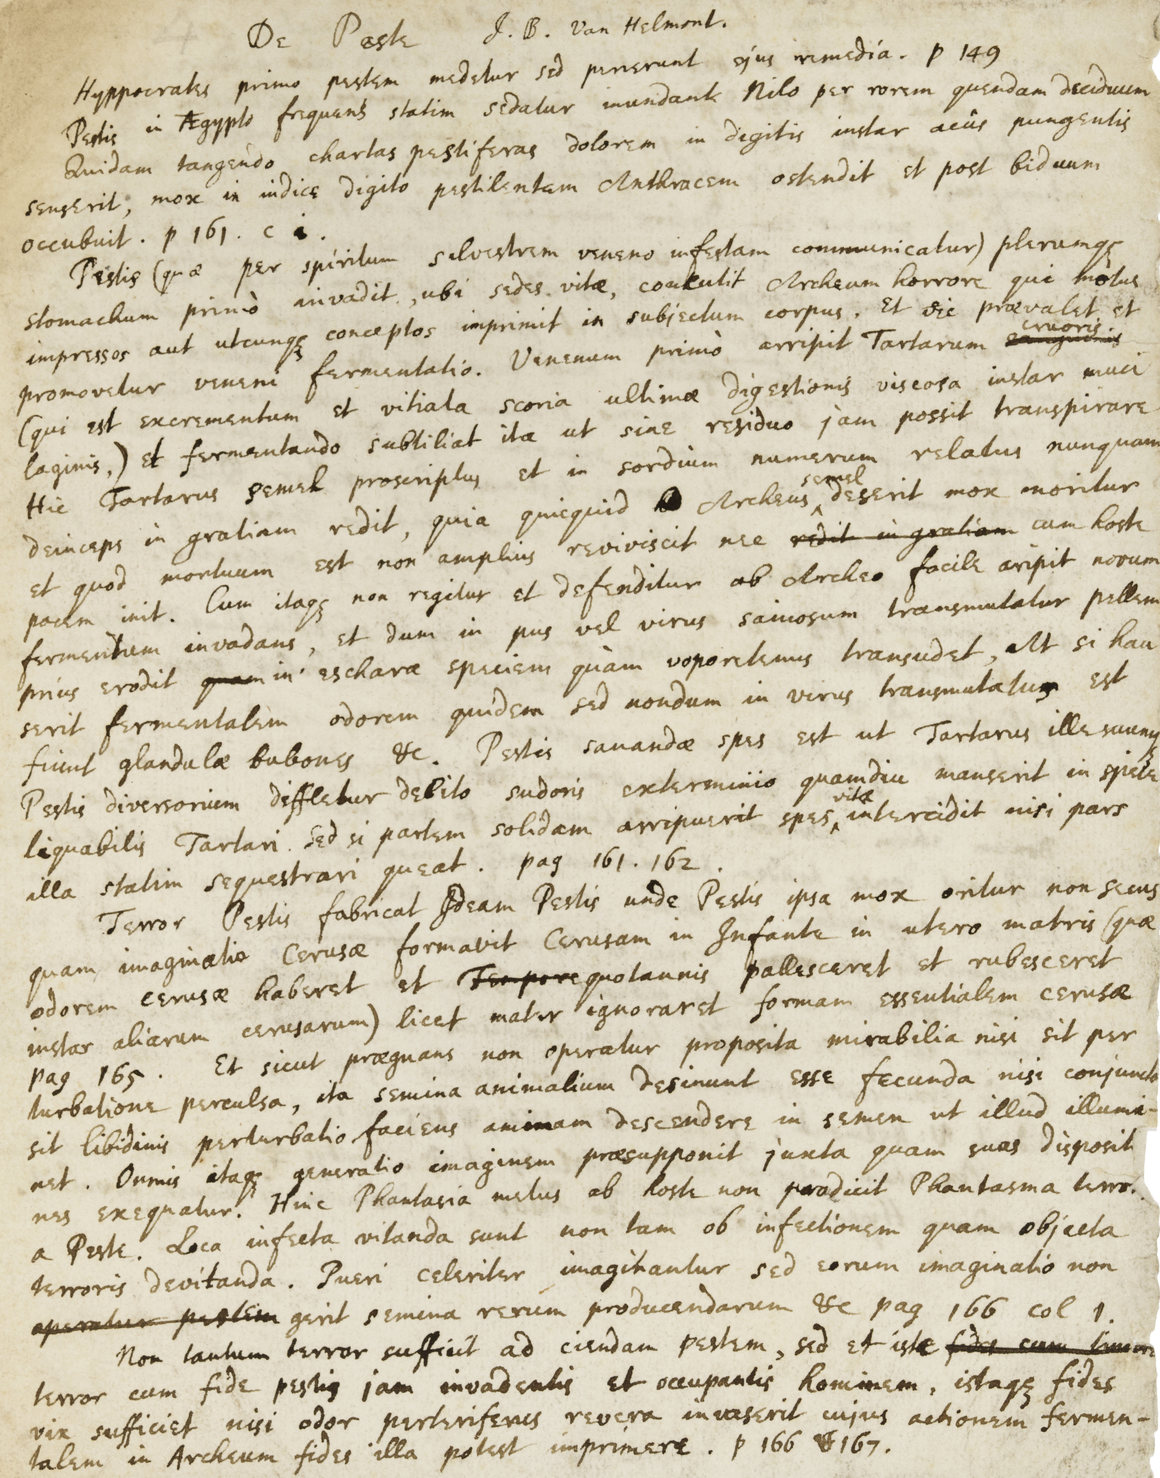 De Peste J. B. Van Helmont.
Hyppocrates primo pestem medetur sed perierunt ejus remedia. p 149
Pestis in Ægypto frequens statim sedatur inundante Nilo per rorem quendam deciduum
Quidam tangendo chartas pestiferas dolorem in digitis instar acûs pungentis
senserit, mox in indice digito pestilentem Anthracem ostendit et post biduum
occubuit. p 161. c 1.
Pestis (quæ per spiritum silvestrem veneno infestam communicatur) plerumqꝫ
stomachum primò invadit, ubi sedes vitæ, concutit Archeum horrore qui motus
impressos aut utcunqꝫ conceptos imprimit in subjectum corpus. Et sic prævalet et
promovetur veneni fermentatio. Venenum primò arripit Tartarum sanguinis cruoris
(qui est excrementum et vitiata scoria ultimæ digestionis viscosa instar muci
laginis,) et fermentando subtiliat ita ut sine residuo jam possit transpirare
Hic Tartarus semel proscriptus et in sordium numerum relatus nunquam
deinceps in gratiam redit, quia quicquid Archeus semel deserit mox moritur
et quod mortuum est non amplius reviviscit nec redit in gratiam cum hoste
pacem init. Cum itaqꝫ non regitur et defenditur ab Archeo facile aripit novum
fermentum invadans, et dum in pus vel virus saniosum transmutatur pellem
prius erodit quam in escharæ speciem quàm voporetenus transudet, At si hau
serit fermentalem odorem quidem sed nondum in virus transmutatus est
fiunt glandulæ bubones &c. Pestis sanandæ spes est ut Tartarus ille
Pestis diversorium diffletur debito sudoris exterminio quamdiu manserit in specie
liquabilis Tartari. Sed si partem solidam arripuerit spes vitæ intercidit nisi pars
illa statim sequestrari queat. pag 161. 162.
Terror Pestis fabricat Ideam Pestis unde Pestis ipsa mox oritur non secus
quam imaginatio Cerusæ formavit Cerusam in Infante in utero matris (quæ
odorem cerusæ haberet et Tempore quotannis pallesceret et rubesceret
instar aliarum cerusarum) licet mater ignoraret formam essentialem cerusæ
pag 165. Et sicut prægnans non operatur proposita mirabilia nisi sit per
turbatione perculsa, ita semina animalium desinunt esse fecunda nisi conjuncta
sit libidinis perturbatio faciens animam descendere in semen ut illud illumi-
net. Omnis itaqꝫ generatio imaginem præsupponit juxta quam suas disposit
nes exequatur. Hinc Phantasia metus ab hoste non producit Phantasma terro.
a Peste. Loca infecta vitanda sunt non tam ob infectionem quam objecta
terroris devitanda. Pueri celeriter imaginantur sed eorum imaginatio non
operatur pestem gerit semina rerum producendarum &c pag 166 col 1.
Non tantum terror sufficit ad ciendam pestem, sed et iste fides cum timore
terror cum fide pestis jam invadentis et occupantis hominem, istaqꝫ fides
vix sufficiet nisi odor revera invaserit cujus actionem fermen-
talem in Archeum fides illa potest imprimere. p 166 & 167.